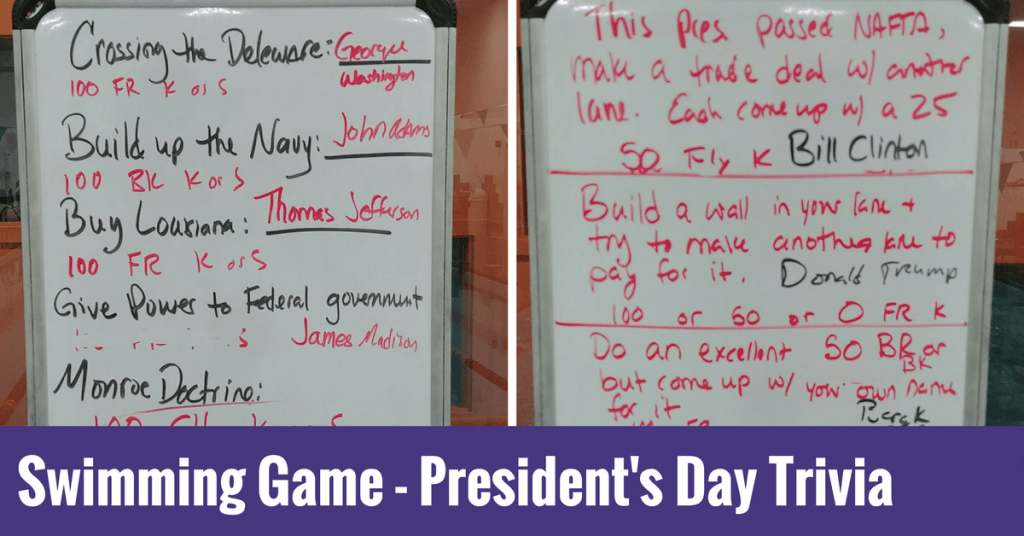 Crossing the Deleware: George
Washington
100 FR K or S
Build up the Navy: John Adams
100 BK K or S
Buy Lousiana: Thomas Jefferson
100 FR K or S
Give Power to Federal government
S James Madison
Monroe Doctrine:
This Pres. passed NAFTA,
make a trade deal w/ another
lane. Each come up w/ a 25
50 Fly K Bill Clinton
Build a wall in your lane +
try to make another lane to
pay for it. Donald Trump
100 or 50 or 0 FR K
Do an excellent 50 BR or
BK
but come up w/ your own name
for it
Swimming Game - President's Day Trivia